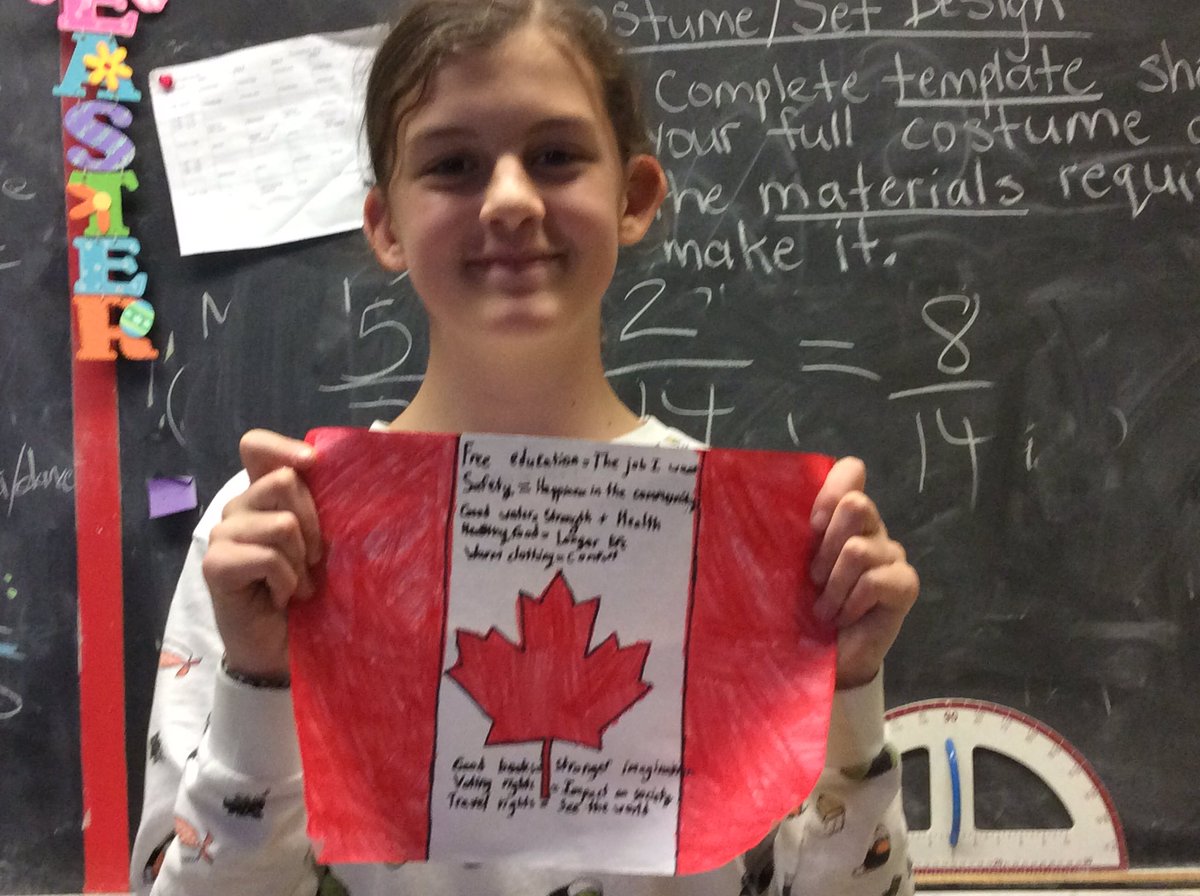 EASTER
ostume/Set Design
Complete template
your full costume
the materials requi
make it.
5 2 = 8
14 14
Free education = The job I want
Safety = Happiness in the community
Good water = Strength + Health
Healthy food = Longer life
Warm clothing = Comfort
Good books = Stronger imagination
Voting rights = Impact on society
Travel rights = See the world